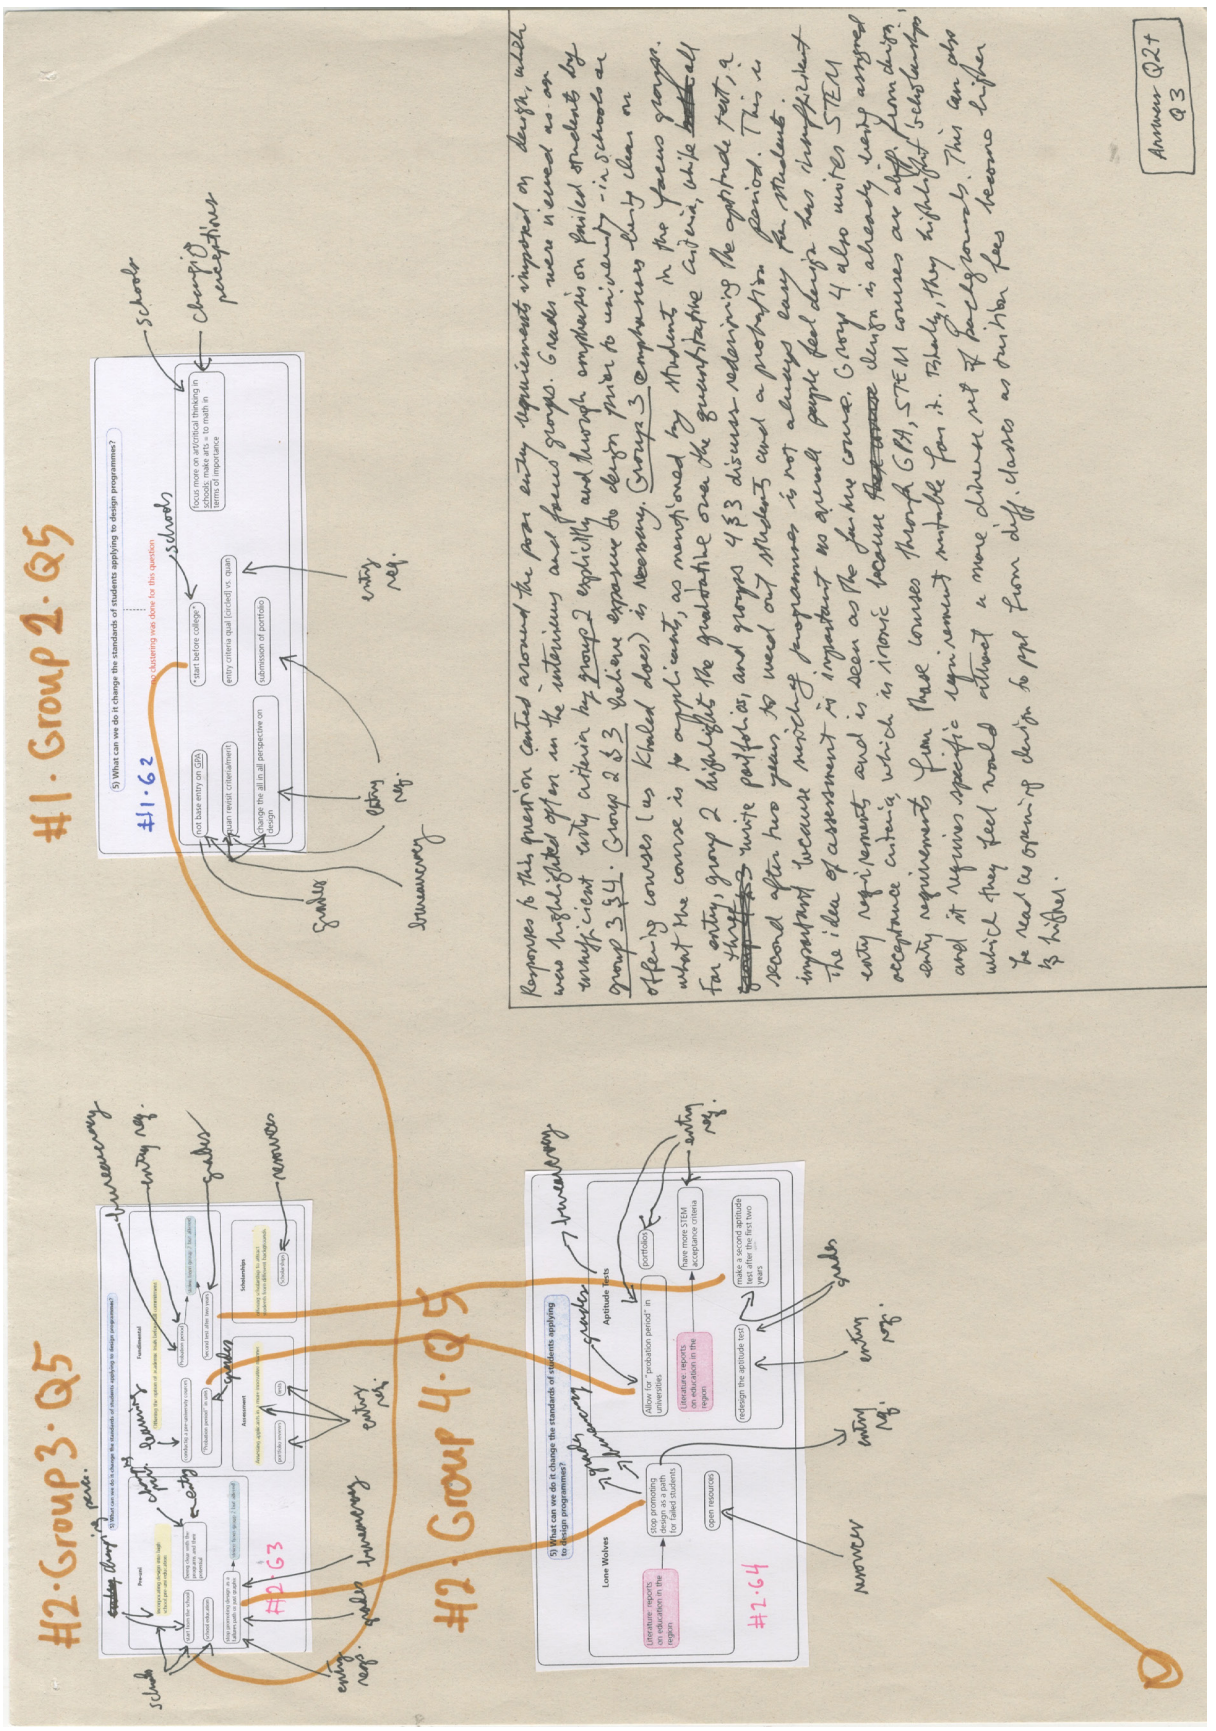 #2·Group 3·Q5
5) What can we do it change the standards of students applying to design programmes?
Pre-uni
start from the school
school education
stop promoting design as a
failures path or just graphic
being clear with the
program, and their
potential
Fundamental
conduct a pre-university courses
"Probation period" in uni
Probation period
Second test after two years
Assessment
portfolio
tests
Scholarships
Scholarships
#2·G3
schools
changing perc.
bureaucracy
entry req.
grades
resources
learning
grades
entry
req.
bureaucracy
grades
entry
reqs.
#1·Group 2·Q5
5) What can we do it change the standards of students applying to design programmes?
no clustering was done for this question
#1·G2
not base entry on GPA
quan revisit criteria/merit
change the all in all perspective on
design
*start before college*
entry criteria qual [circled] vs. quan
submission of portfolio
focus more on art/critical thinking in
schools: make arts = to math in
terms of importance
schools
schools
changing
perceptions
grades
bureaucracy
entry
req.
entry
req.
#2·Group 4·Q5
5) What can we do it change the standards of students applying
to design programmes?
Lone Wolves
Literature: reports
on education in the
region
stop promoting
design as a path
for failed students
open resources
#2·G4
Aptitude Tests
Allow for "probation period" in
universities
portfolios
Literature: reports
on education in the
region
have more STEM
acceptance criteria
redesign the aptitude test
make a second aptitude
test after the first two
years
grades
bureaucracy
grades
bureaucracy
entry
req.
resources
entry
req.
entry
req.
grades
Responses to this question centred around the poor entry requirements imposed on design, which
was highlighted often in the interviews and focus groups. Grades were viewed as an
insufficient entry criterion by group 2 explicitly and through emphasis on failed students by
group 3 & 4. Group 2 & 3 believe exposure to design prior to university - in schools or
offering courses (as Khaled does) is necessary. Group 3 emphasises being clear on
what the course is to applicants, as mentioned by students in the focus groups.
For entry, group 2 highlight the qualitative over the quantitative criteria, while all
three invite portfolios, and groups 4 & 3 discuss redesigning the aptitude test, a
second after two years to weed out students and a probation period. This is
important because switching programmes is not always easy for students.
The idea of assessment is important as overall people feel design has insufficient
entry requirements and is seen as the failure course. Group 4 also invites STEM
acceptance criteria, which is ironic because design is already being assigned
entry requirements from those courses through GPA, STEM courses are diff. from design
and it requires specific requirement suitable for it. Finally, they highlight scholarships
which they feel would attract a more diverse set of backgrounds. This can also
be read as opening design to ppl from diff. classes as tuition fees become higher
& higher.
Answers Q2+
Q3